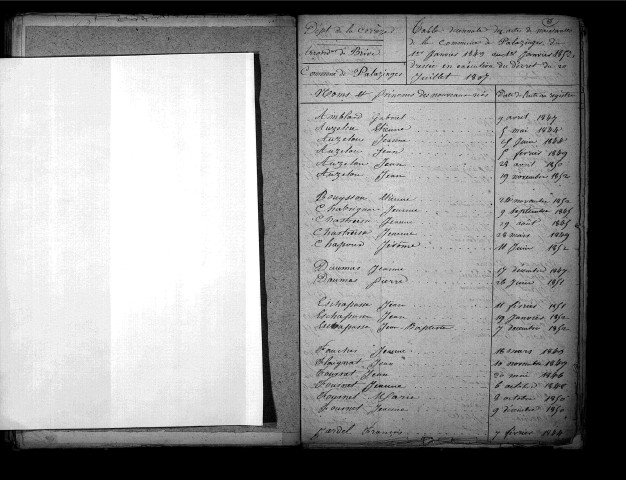 Dépt de la Corrèze
Arrondt de Brive
Commune de Palazinges
Table décennale des actes de naissances
de la Commune de Palazinges, du
1er Janvier 1843 au 1er Janvier 1853,
dressée en exécution du décret du 20
Juillet 1807
Noms et prénoms des nouveaux nés
Date de l'acte au registre
Amblard 9 avril 1847
Auzelou Etienne 5 mai 1844
Auzelou Jeanne Juin 1844
Auzelou Jean 5 février 1849
Auzelou Jean 28 avril
Auzelou Jean 19 novembre 1852
Bouysson 28 novembre
Chabrignac Jeanne 9 septembre 1845
Jeanne 29 août 1845
Jeanne 28 mars 1849
Jérôme 11 Juin 1852
Daumas Jeanne 17 décembre 1847
Daumas Pierre 26 Juin 1851
Eschapasse Jean 11 février 1851
Eschapasse Jean 19 Janvier 1852
Eschapasse Jean Baptiste 7 décembre 1852
Jeanne 18 mars 1843
Jean 10 novembre 1849
Fournet Jean 20 mai 1846
Fournet Jeanne 6 octobre 1848
Fournet Marie 8 octobre 1850
Fournet Jeanne 9 décembre 1850
François 7 février 1844